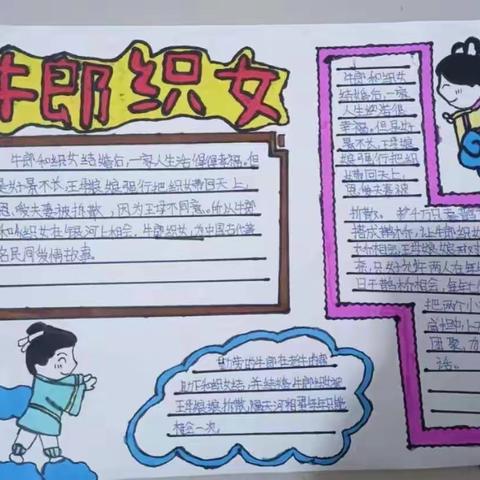 牛郎织女
牛郎和织女结婚后，一家人生活得很幸福。但
是好景不长，王母娘娘强行把织女带回天上，
恩爱夫妻被拆散，因为王母不同意。所以牛郎
和织女在银河上相会，牛郎织女，为中国古代著
名民间爱情故事。
牛郎和织女
结婚后，一家
人生活得很
幸福。但是好
景不长，王母娘
娘强行把织
女带回天上，
恩爱夫妻被
拆散。
搭成鹊桥，让牛郎织女
桥相会，王母娘娘对
奈，只好允许两人在每年
日于鹊桥相会，每年七
把两个小
团聚，
话。
勤劳的牛郎在老牛的帮
助下和织女结，并结婚，牛郎织女被
王母娘娘拆散，隔天河相望，每年只能
相会一次。